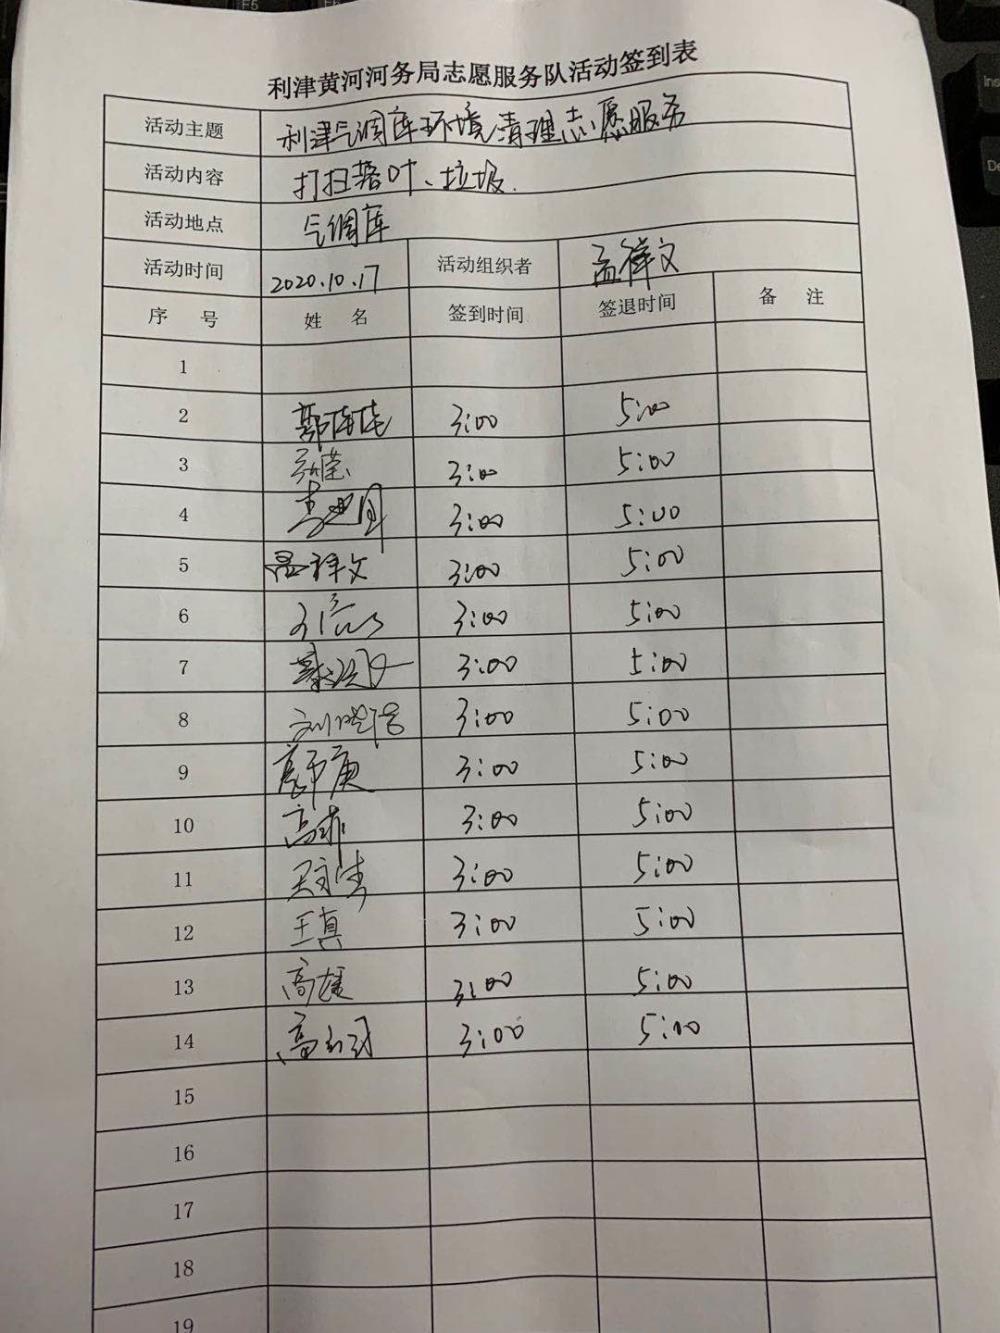 利津黄河河务局志愿服务队活动签到表
活动主题 利津气调库环境清理志愿服务
活动内容 打扫落叶、垃圾.
活动地点 气调库
活动时间 2020.10.17 活动组织者 孟祥文
序 号 姓 名 签到时间 签退时间 备 注
1
2 3:00 5:00
3 3:00 5:00
4 3:00 5:00
5 孟祥文 3:00 5:00
6 3:00 5:00
7 3:00 5:00
8 3:00 5:00
9 3:00 5:00
10 高菲 3:00 5:00
11 3:00 5:00
12 王真 3:00 5:00
13 高雄 3:00 5:00
14 3:00 5:00
15
16
17
18
19